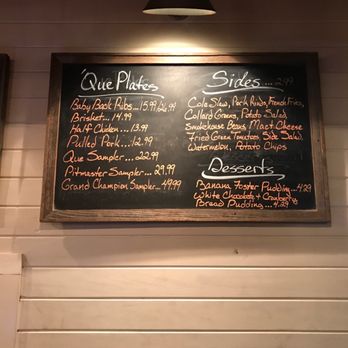 'Que Plates
Baby Back Ribs...15.99/22.99
Brisket...14.99
Half Chicken...13.99
Pulled Pork...12.99
Que Sampler....22.99
Pitmaster Sampler...29.99
Grand Champion Sampler...49.99
Sides....2.99
Cole Slaw, Pork Rinds, French Fries,
Collard Greens, Potato Salad,
Smokehouse Beans, Mac + Cheese
Fried Green Tomatoes, Side Salad
Watermelon, Potato Chips
Desserts
Banana Foster Pudding....4.29
White Chocolate + Cranberry
Bread Pudding....4.29